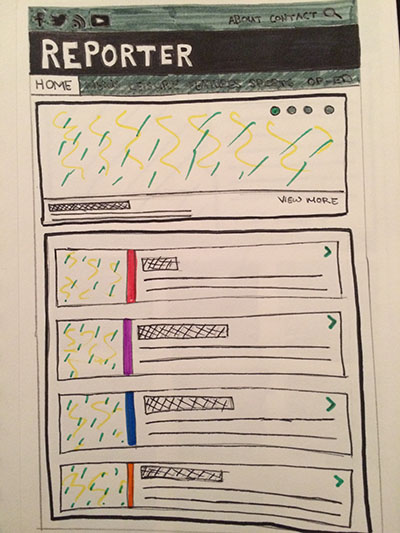 ABOUT CONTACT
REPORTER
HOME NEWS LEISURE FEATURES SPORTS OP-ED
VIEW MORE